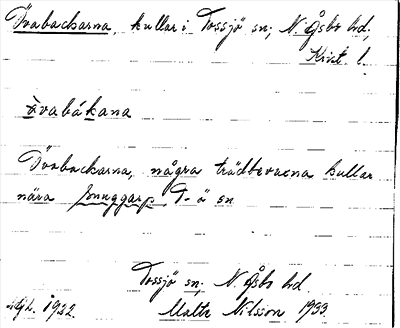 Övabackarna, kullar i Tossjö sn; N. Åsbo hd,
Krist. l.
ò̀vabákana
Övabackarna, några trädbevuxna kullar
nära T-ö sn
Tossjö sn; N. Åsbo hd
1922. Malte Nilsson 1933.